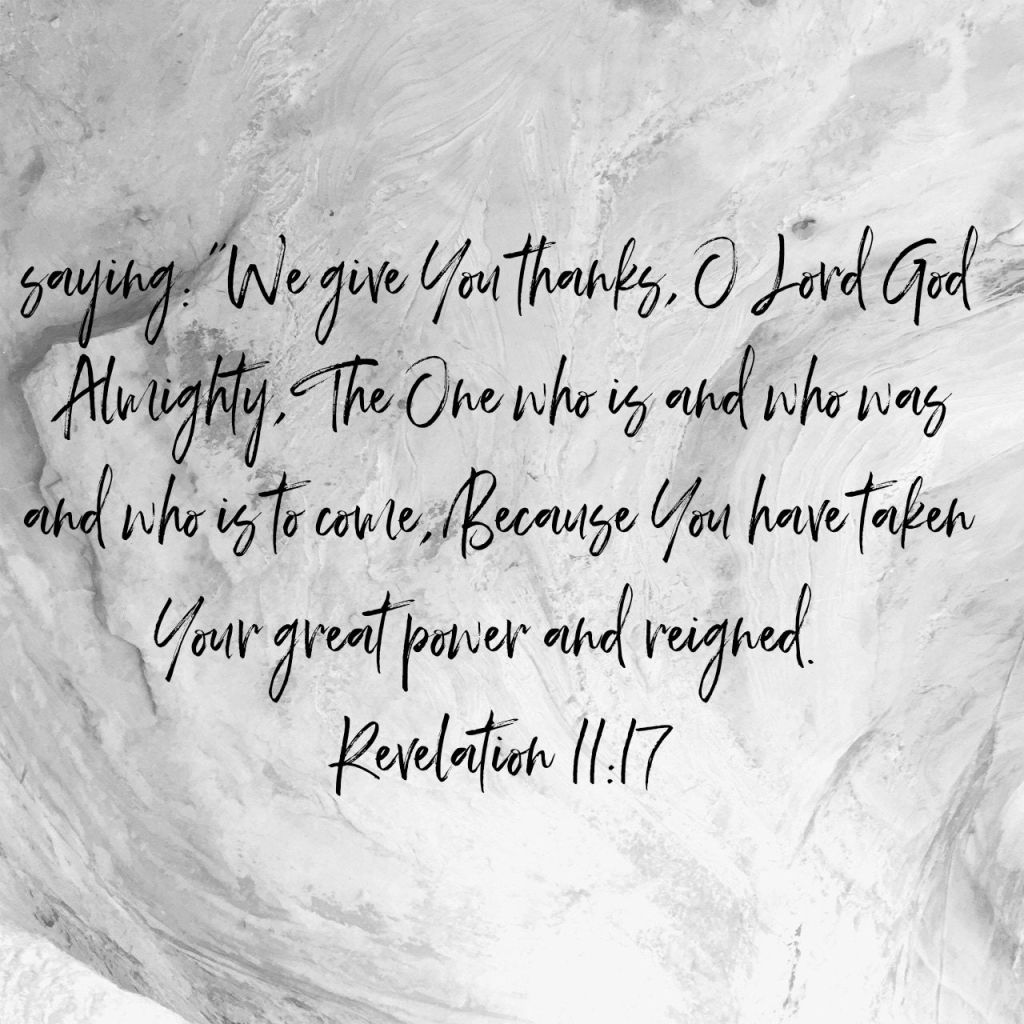 saying: "We give You thanks, O Lord God
Almighty, The One who is and who was
and who is to come, Because You have taken
Your great power and reigned.
Revelation 11:17